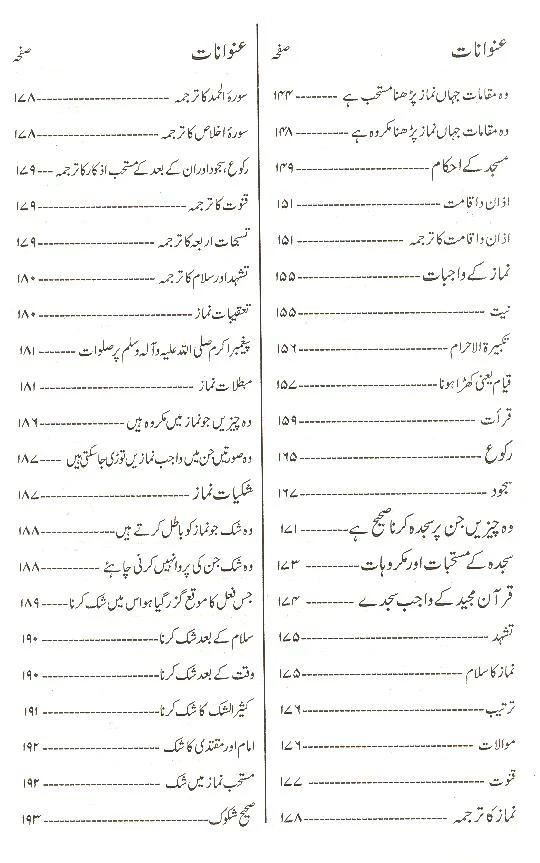 عنوانات صفحہ
وہ مقامات جہاں نماز پڑھنا مستحب ہے ---------- ۱۴۴
وہ مقامات جہاں نماز پڑھنا مکروہ ہے ---------- ۱۴۸
مسجد کے احکام ---------- ۱۴۹
اذان و اقامت ---------- ۱۵۱
اذان و اقامت کا ترجمہ ---------- ۱۵۱
نماز کے واجبات ---------- ۱۵۵
نیت ---------- ۱۵۵
تکبیرۃ الاحرام ---------- ۱۵۶
قیام یعنی کھڑا ہونا ---------- ۱۵۷
قرأت ---------- ۱۵۹
رکوع ---------- ۱۶۵
سجود ---------- ۱۶۷
وہ چیزیں جن پر سجدہ کرنا صحیح ہے ---------- ۱۷۱
سجدہ کے مستحبات اور مکروہات ---------- ۱۷۳
قرآن مجید کے واجب سجدے ---------- ۱۷۴
تشہد ---------- ۱۷۵
نماز کا سلام ---------- ۱۷۵
ترتیب ---------- ۱۷۶
موالات ---------- ۱۷۶
قنوت ---------- ۱۷۷
نماز کا ترجمہ ---------- ۱۷۸
عنوانات صفحہ
سورۂ الحمد کا ترجمہ ---------- ۱۷۸
سورۂ اخلاص کا ترجمہ ---------- ۱۷۸
رکوع، سجود اور ان کے بعد کے مستحب اذکار کا ترجمہ --- ۱۷۹
قنوت کا ترجمہ ---------- ۱۷۹
تسبیحات اربعہ کا ترجمہ ---------- ۱۷۹
تشہد اور سلام کا ترجمہ ---------- ۱۸۰
تعقیبات نماز ---------- ۱۸۰
پیغمبر اکرم صلی اللہ علیہ وآلہ وسلم پر صلوات ------ ۱۸۱
مبطلات نماز ---------- ۱۸۱
وہ چیزیں جو نماز میں مکروہ ہیں ---------- ۱۸۶
وہ صورتیں جن میں واجب نمازیں توڑی جا سکتی ہیں ---- ۱۸۷
شکیات نماز ---------- ۱۸۷
وہ شک جو نماز کو باطل کرتے ہیں ---------- ۱۸۸
وہ شک جن کی پروا نہیں کرنی چاہئے ---------- ۱۸۸
جس فعل کا موقع گزر گیا ہو اس میں شک کرنا ----- ۱۸۹
سلام کے بعد شک کرنا ---------- ۱۹۰
وقت کے بعد شک کرنا ---------- ۱۹۰
کثیر الشک کا شک کرنا ---------- ۱۹۱
امام اور مقتدی کا شک ---------- ۱۹۲
مستحب نماز میں شک ---------- ۱۹۲
صحیح شکوک ---------- ۱۹۳